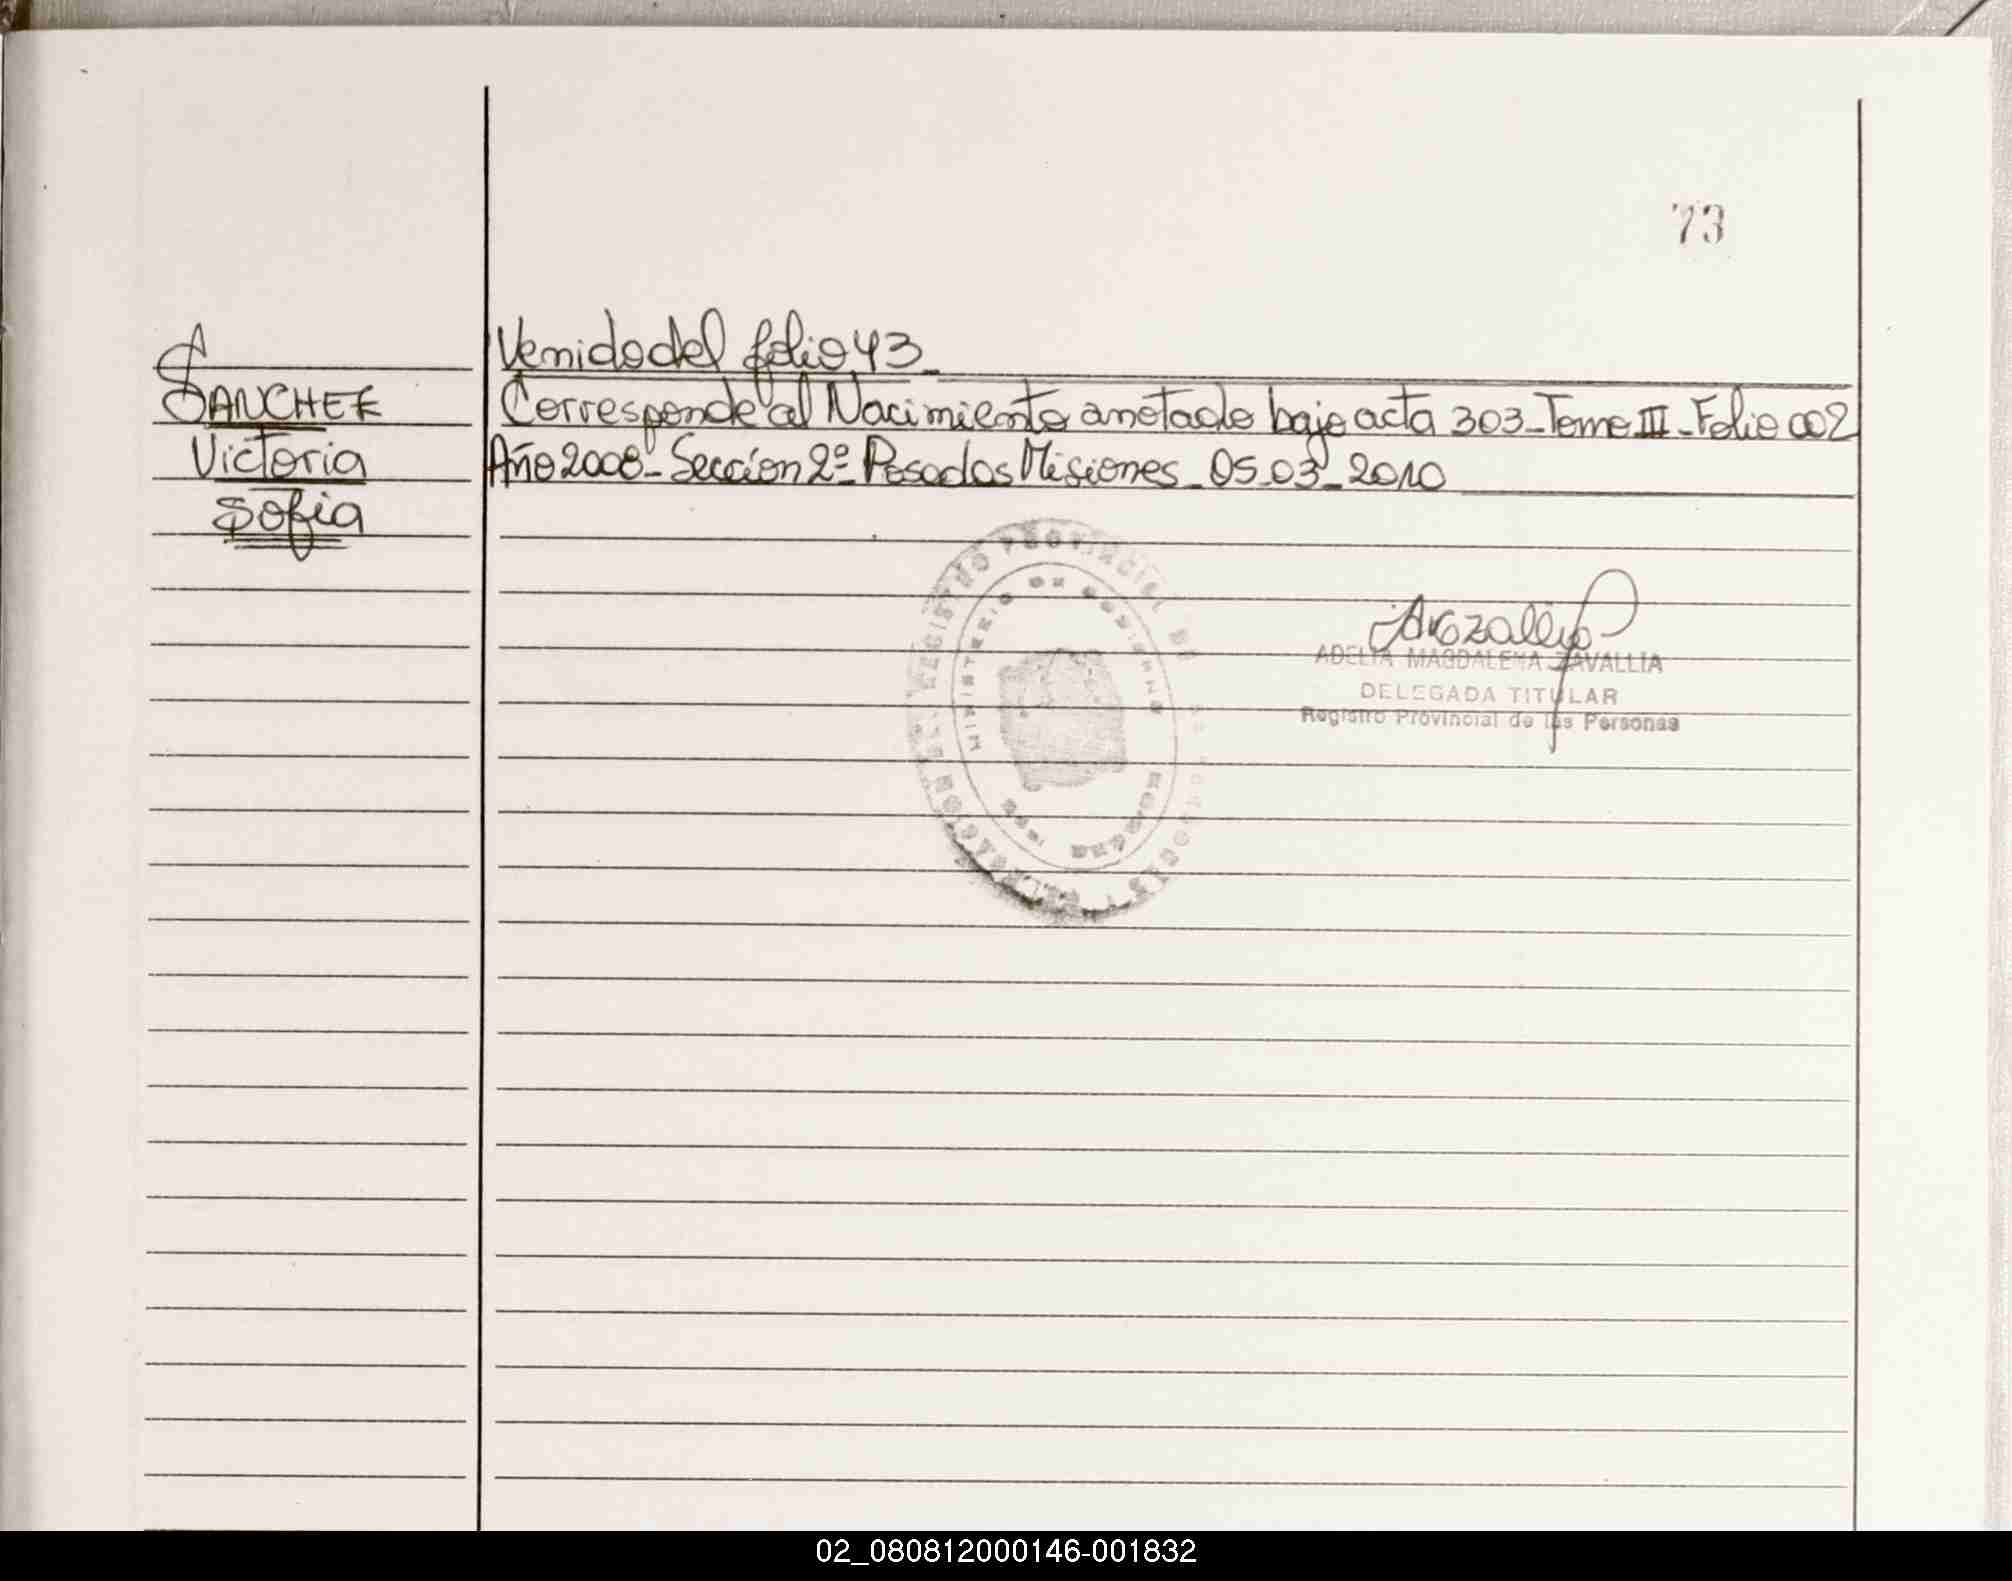 73
Venido del folio 43_
SANCHEZ
Corresponde al Nacimiento anotado bajo acta 303_Tomo III_Folio 002
Victoria
Año 2008_Sección 2º_Posadas Misiones_05_03_2010
Sofia
REGISTRO PROVINCIAL DE
MINISTERIO DE GOBIERNO
ADELIA MAGDALENA ZAVALLIA
DELEGADA TITULAR
Registro Provincial de las Personas
02_080812000146-001832